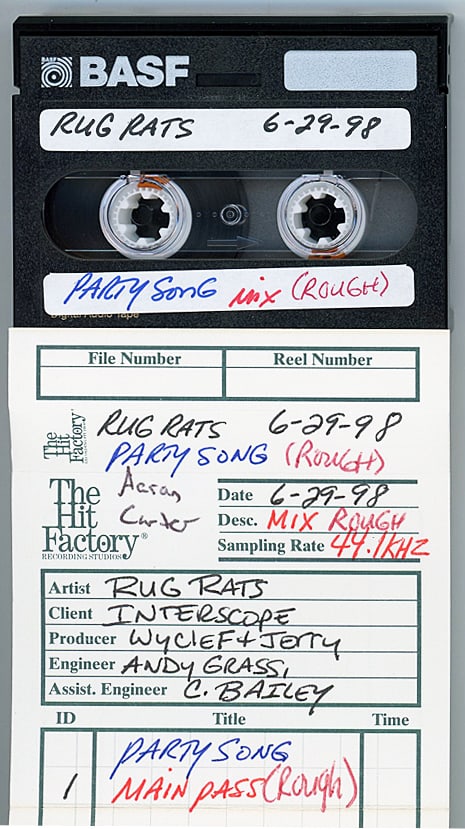 BASF
RUG RATS 6-29-98
PARTY SONG MIX (ROUGH)
Digital Audio Tape
File Number Reel Number
The Hit Factory
RUG RATS 6-29-98
PARTY SONG (ROUGH)
Aaron
Carter
The
Hit
Factory®
RECORDING STUDIOS
Date 6-29-98
Desc. MIX ROUGH
Sampling Rate 44.1KHZ
Artist RUG RATS
Client INTERSCOPE
Producer WYCLEF + JERRY
Engineer ANDY GRASSI
Assist. Engineer C. BAILEY
ID Title Time
PARTY SONG
1 MAIN PASS (Rough)